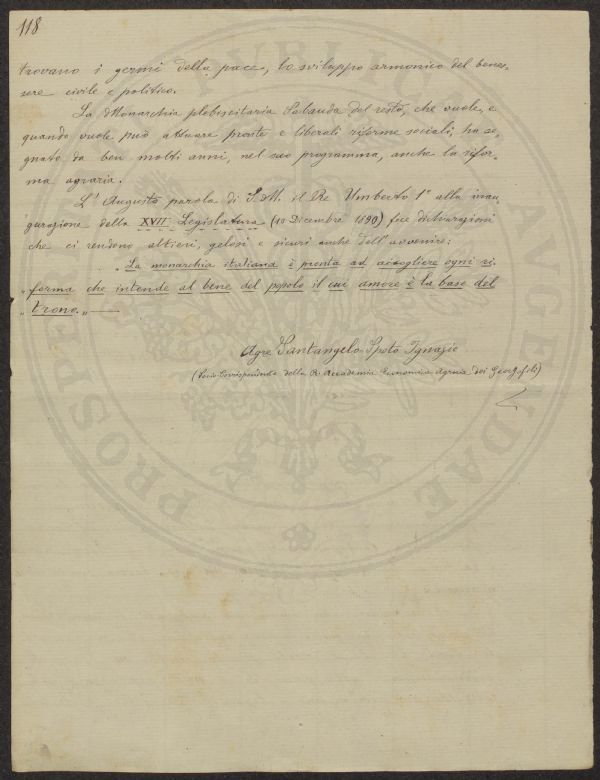 118
trovano i germi della pace, lo sviluppo armonico del benes-
sere civile e politico.
La Monarchia plebiscitaria Sabauda del resto, che vuole, e
quando vuole può attuare pronte e liberali riforme sociali, ha se,
gnato da ben molti anni, nel suo programma, anche la rifor,
ma agraria.
L'Augusta parola di S. M. il Re Umberto 1° alla inau,
gurazione della XVII Legislatura (10 Dicembre 1890) fece dichiarazioni
che ci rendono altieri, gelosi e sicuri anche dell'avvenire:
„La monarchia italiana è pronta ad accogliere ogni ri-
„forma che intende al bene del popolo il cui amore è la base del
„trono.„
Agre Santangelo Spoto Ignazio
(Socio Corrispondente della R. Accademia Economica Agraria dei Georgofili)
PROSPERITATI PUBLICAE AUGENDAE